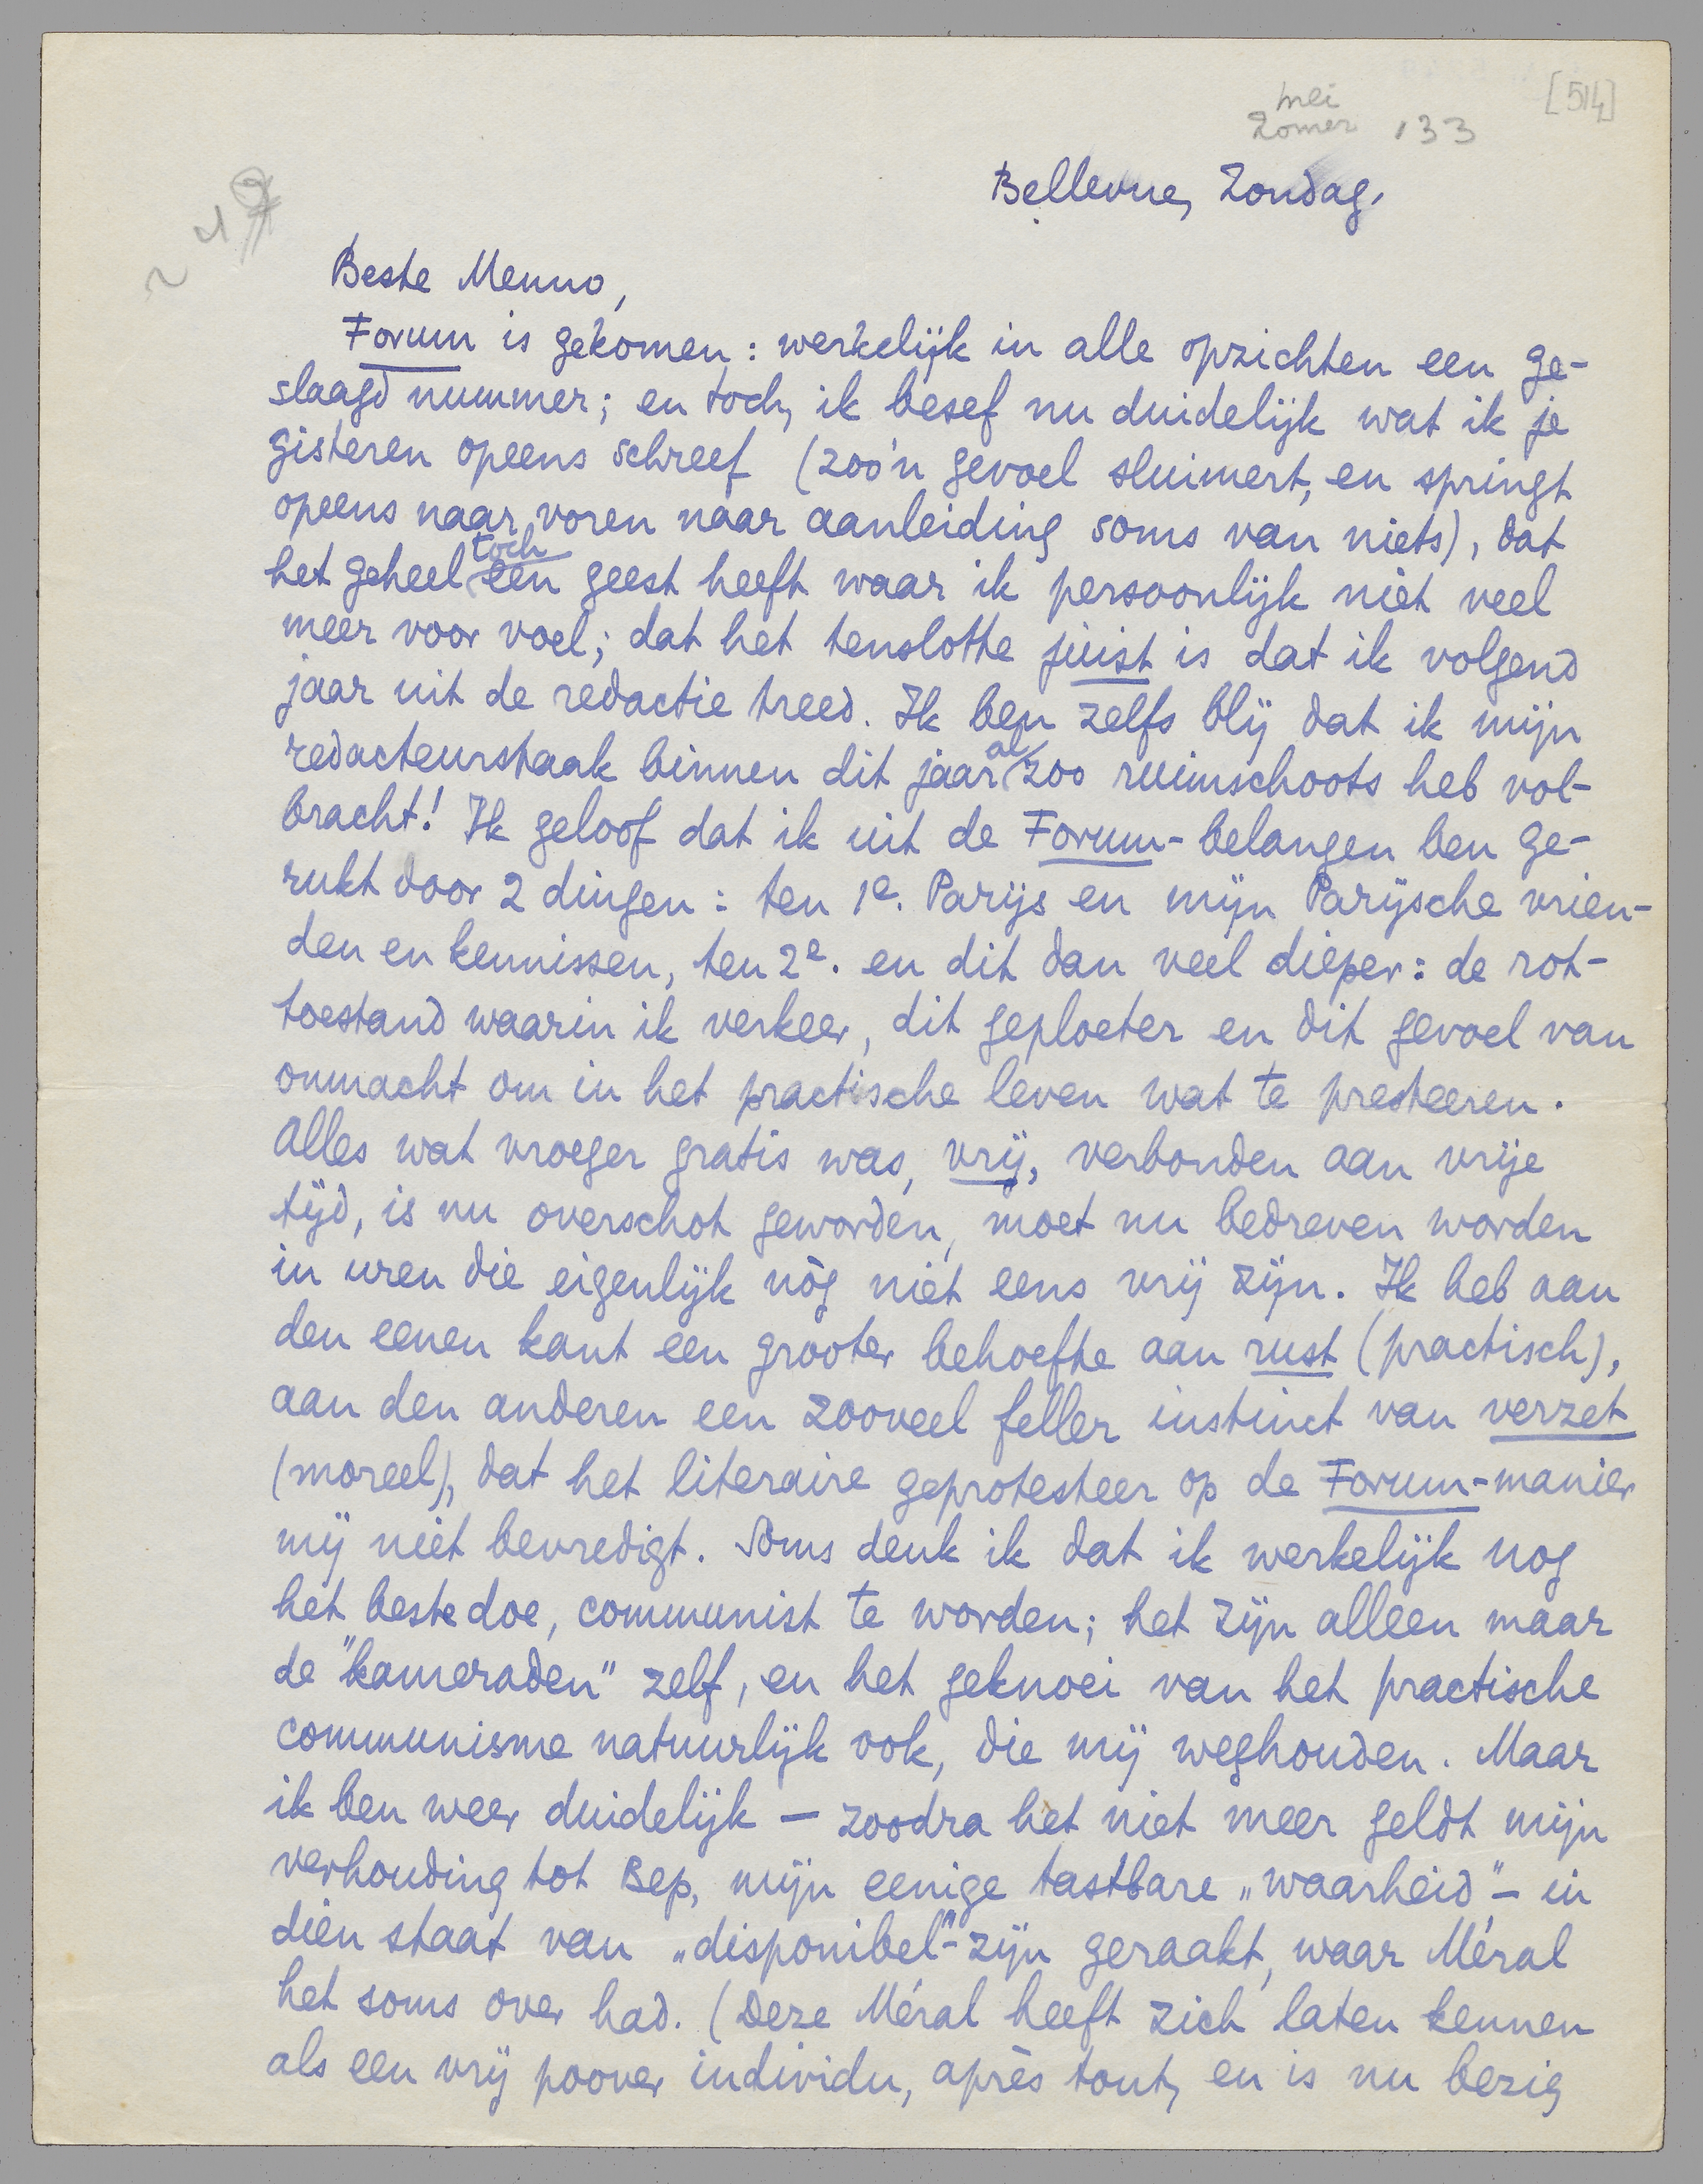 [514]
mei
Zomer '33
Bellevue, Zondag.
Beste Menno,
Forum is gekomen: werkelijk in alle opzichten een ge-
slaagd nummer; en toch, ik besef nu duidelijk wat ik je
gisteren opeens schreef (zoo'n gevoel sluimert, en springt
opeens naar voren naar aanleiding soms van niets), dat
het geheel toch een geest heeft waar ik persoonlijk niet veel
meer voor voel; dat het tenslotte juist is dat ik volgend
jaar uit de redactie treed. Ik ben zelfs blij dat ik mijn
redacteurstaak binnen dit jaar al zoo ruimschoots heb vol-
bracht! Ik geloof dat ik uit de Forum-belangen ben ge-
rukt door 2 dingen: ten 1e. Parijs en mijn Parijsche vrien-
den en kennissen, ten 2e. en dit dan veel dieper: de rot-
toestand waarin ik verkeer, dit geploeter en dit gevoel van
onmacht om in het practische leven wat te presteeren.
Alles wat vroeger gratis was, vrij, verbonden aan vrije
tijd, is nu overschot geworden, moet nu bedreven worden
in uren die eigenlijk nòg niet eens vrij zijn. Ik heb aan
den eenen kant een grooter behoefte aan rust (practisch),
aan den anderen een zooveel feller instinct van verzet
(moreel), dat het literaire geprotesteer op de Forum-manier
mij niet bevredigt. Soms denk ik dat ik werkelijk nog
het beste doe, communist te worden; het zijn alleen maar
de "kameraden" zelf, en het geknoei van het practische
communisme natuurlijk ook, die mij weghouden. Maar
ik ben weer duidelijk — zoodra het niet meer geldt mijn
verhouding tot Bep, mijn eenige tastbare „waarheid" — in
dien staat van „disponibel"-zijn geraakt, waar Méral
het soms over had. (Deze Méral heeft zich laten kennen
als een vrij poover individu, après tout, en is nu bezig